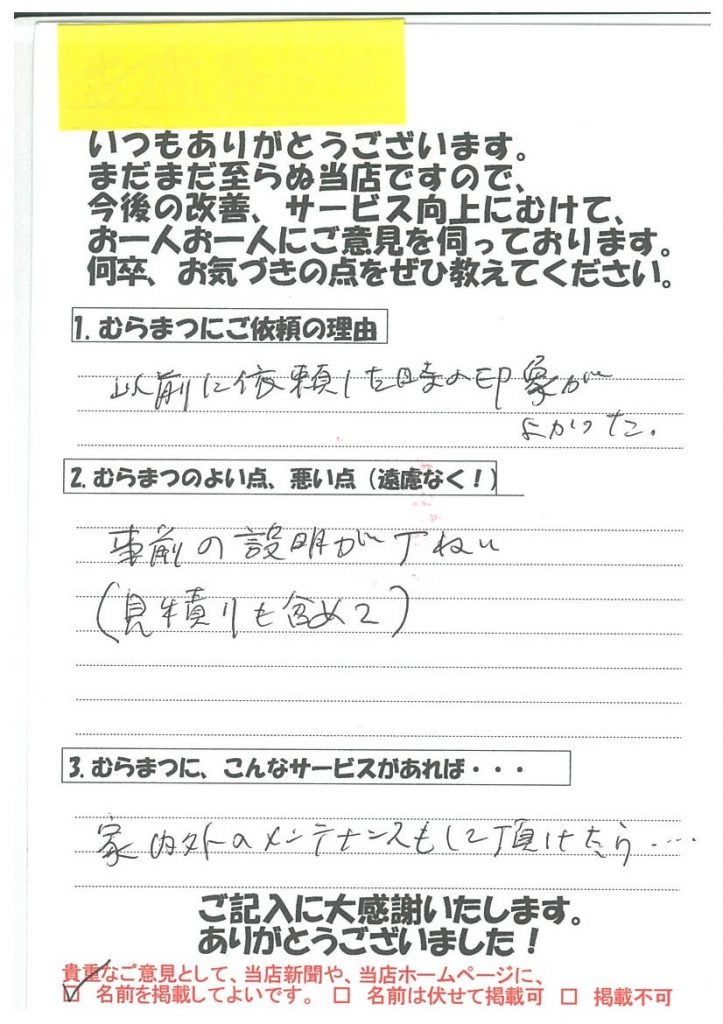 いつもありがとうございます。
まだまだ至らぬ当店ですので、
今後の改善、サービス向上にむけて、
お一人お一人にご意見を伺っております。
何卒、お気づきの点をぜひ教えてください。
1. むらまつにご依頼の理由
以前に依頼した時の印象が
よかった。
2. むらまつのよい点、悪い点（遠慮なく！）
事前の説明が丁ねい
(見積りも含めて)
3. むらまつに、こんなサービスがあれば・・・
家内外のメンテナンスもして頂けたら・・・
ご記入に大感謝いたします。
ありがとうございました！
貴重なご意見として、当店新聞や、当店ホームページに、
☑ 名前を掲載してよいです。 □ 名前は伏せて掲載可 □ 掲載不可